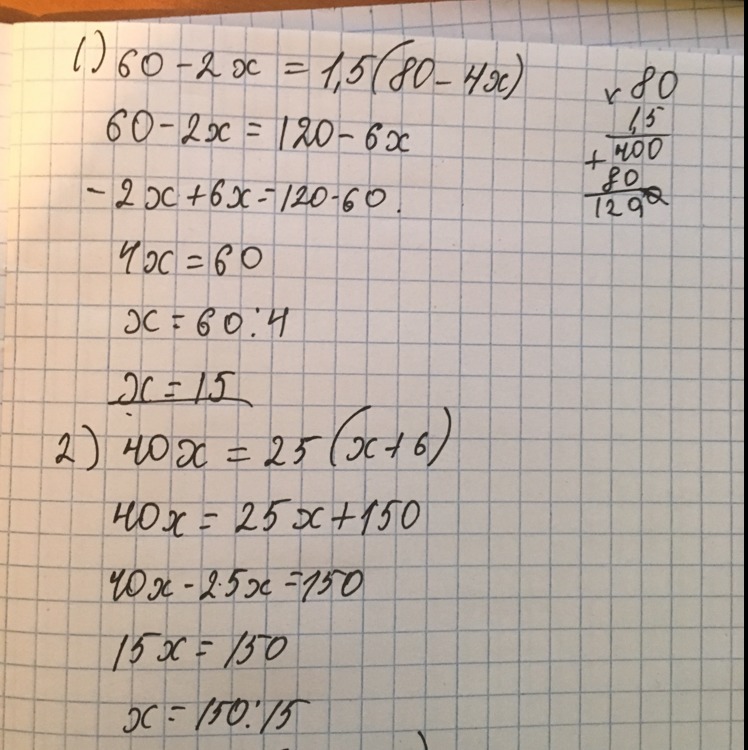 1) 60 - 2x = 1,5(80 - 4x)
60 - 2x = 120 - 6x
- 2x + 6x = 120 - 60.
4x = 60
x = 60 : 4
x = 15
x 80
1,5
+ 400
80
1200
2) 40x = 25(x + 6)
40x = 25x + 150
40x - 25x = 150
15x = 150
x = 150 : 15